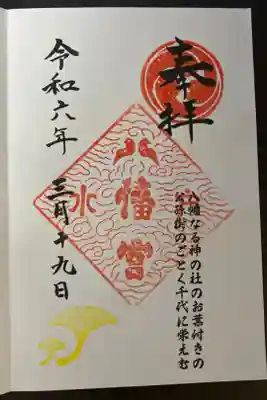 奉拝
八幡なる神の社のお葉付きの
公孫樹のごとく千代に栄えむ
八幡宮
水
令和六年
三月十九日